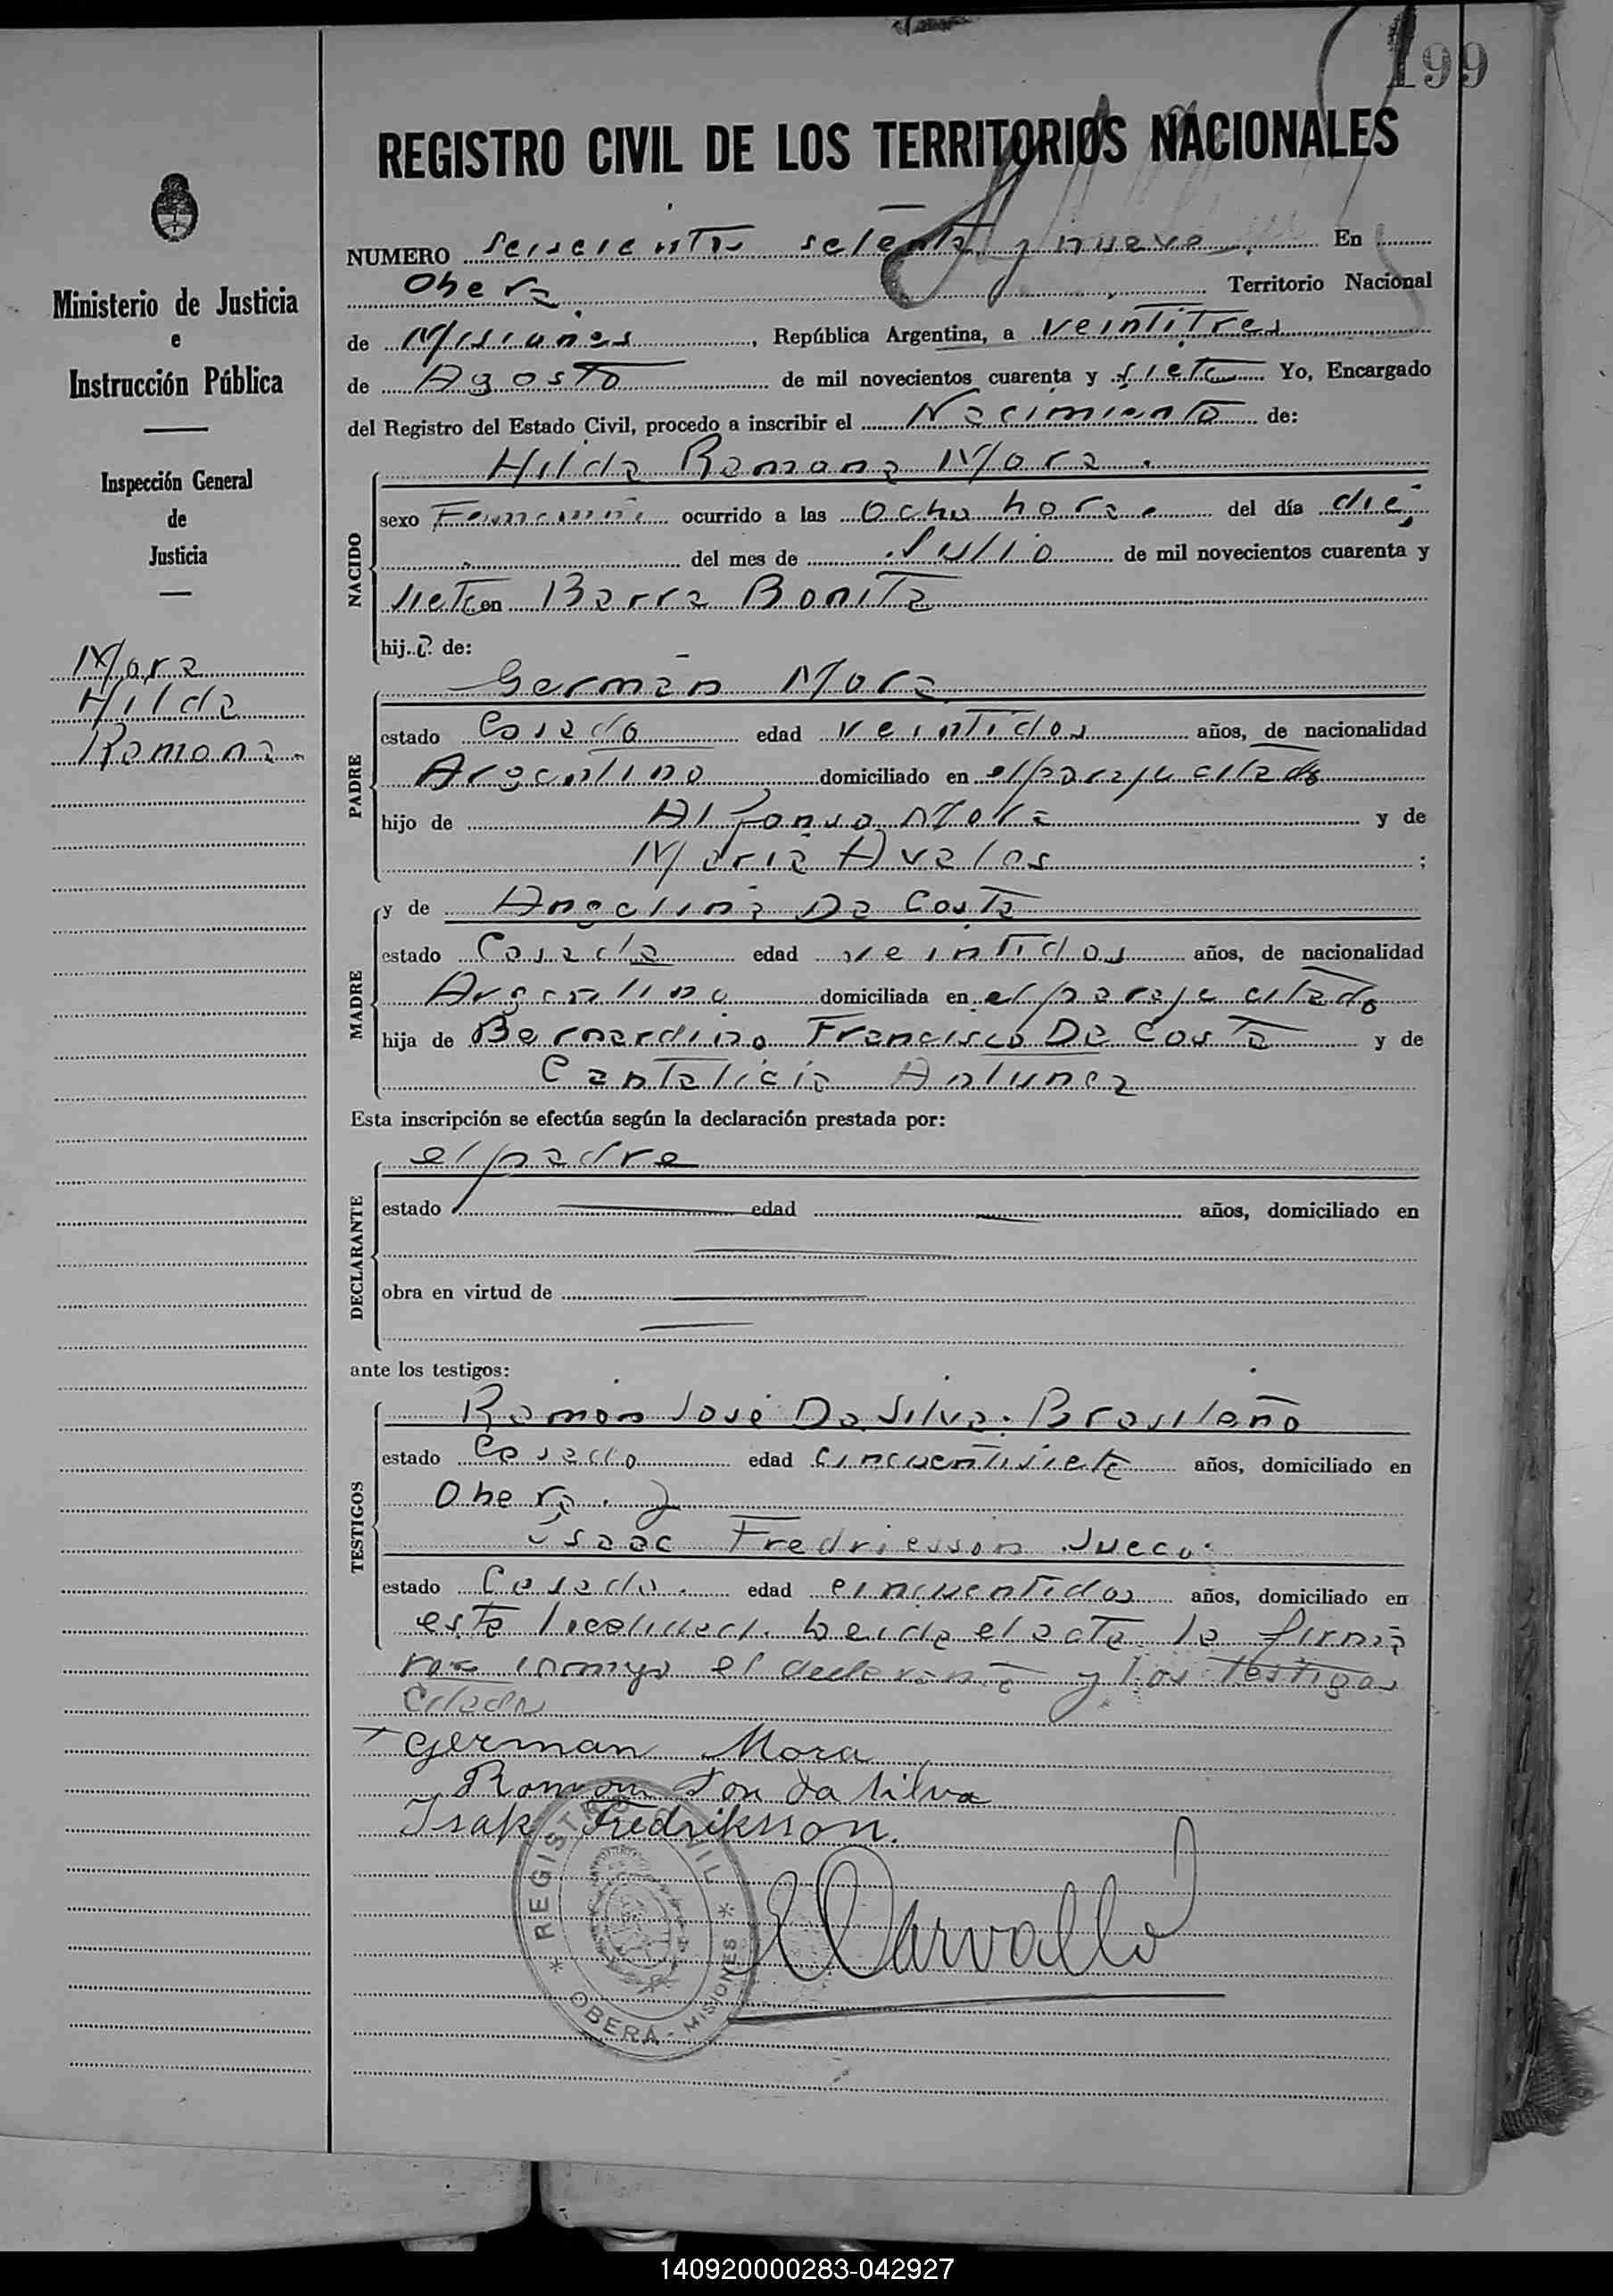 199
REGISTRO CIVIL DE LOS TERRITORIOS NACIONALES
NUMERO Seiscientos setenta y nueve En
Obera Territorio Nacional
de Misiones, República Argentina, a veintitres
de Agosto de mil novecientos cuarenta y siete Yo, Encargado
del Registro del Estado Civil, procedo a inscribir el Nacimiento de:
Hilda Ramona Mora.
NACIDO
sexo Femenino ocurrido a las ocho horas del día diez
del mes de Julio de mil novecientos cuarenta y
siete en Barra Bonita
hija de:
PADRE
German Mora
estado Casado edad veintidos años, de nacionalidad
Argentino domiciliado en el paraje citado
hijo de Alfonso Mora y de
Maria Avalos ;
MADRE
y de Angelina Da Costa
estado Casada edad veintidos años, de nacionalidad
Argentina domiciliada en el paraje citado
hija de Bernardino Francisco Da Costa y de
Cantalicia Antunez
Esta inscripción se efectúa según la declaración prestada por:
DECLARANTE
el padre
estado edad años, domiciliado en
obra en virtud de
ante los testigos:
TESTIGOS
Ramón José Da Silva. Brasileño
estado Casado edad cincuentisiete años, domiciliado en
Obera. y
Isaac Fredriesson Sueco.
estado Casado. edad cincuentidos años, domiciliado en
esta localidad. Leida el acta la firma
ron conmigo el declarante y los testigos
citados
German Mora
Ramon José da Silva
Isak Fredriksson.
Carvallo
REGISTRO CIVIL
* OBERÁ - MISIONES *
Ministerio de Justicia
e
Instrucción Pública
Inspección General
de
Justicia
Mora
Hilda
Ramona.
140920000283-042927